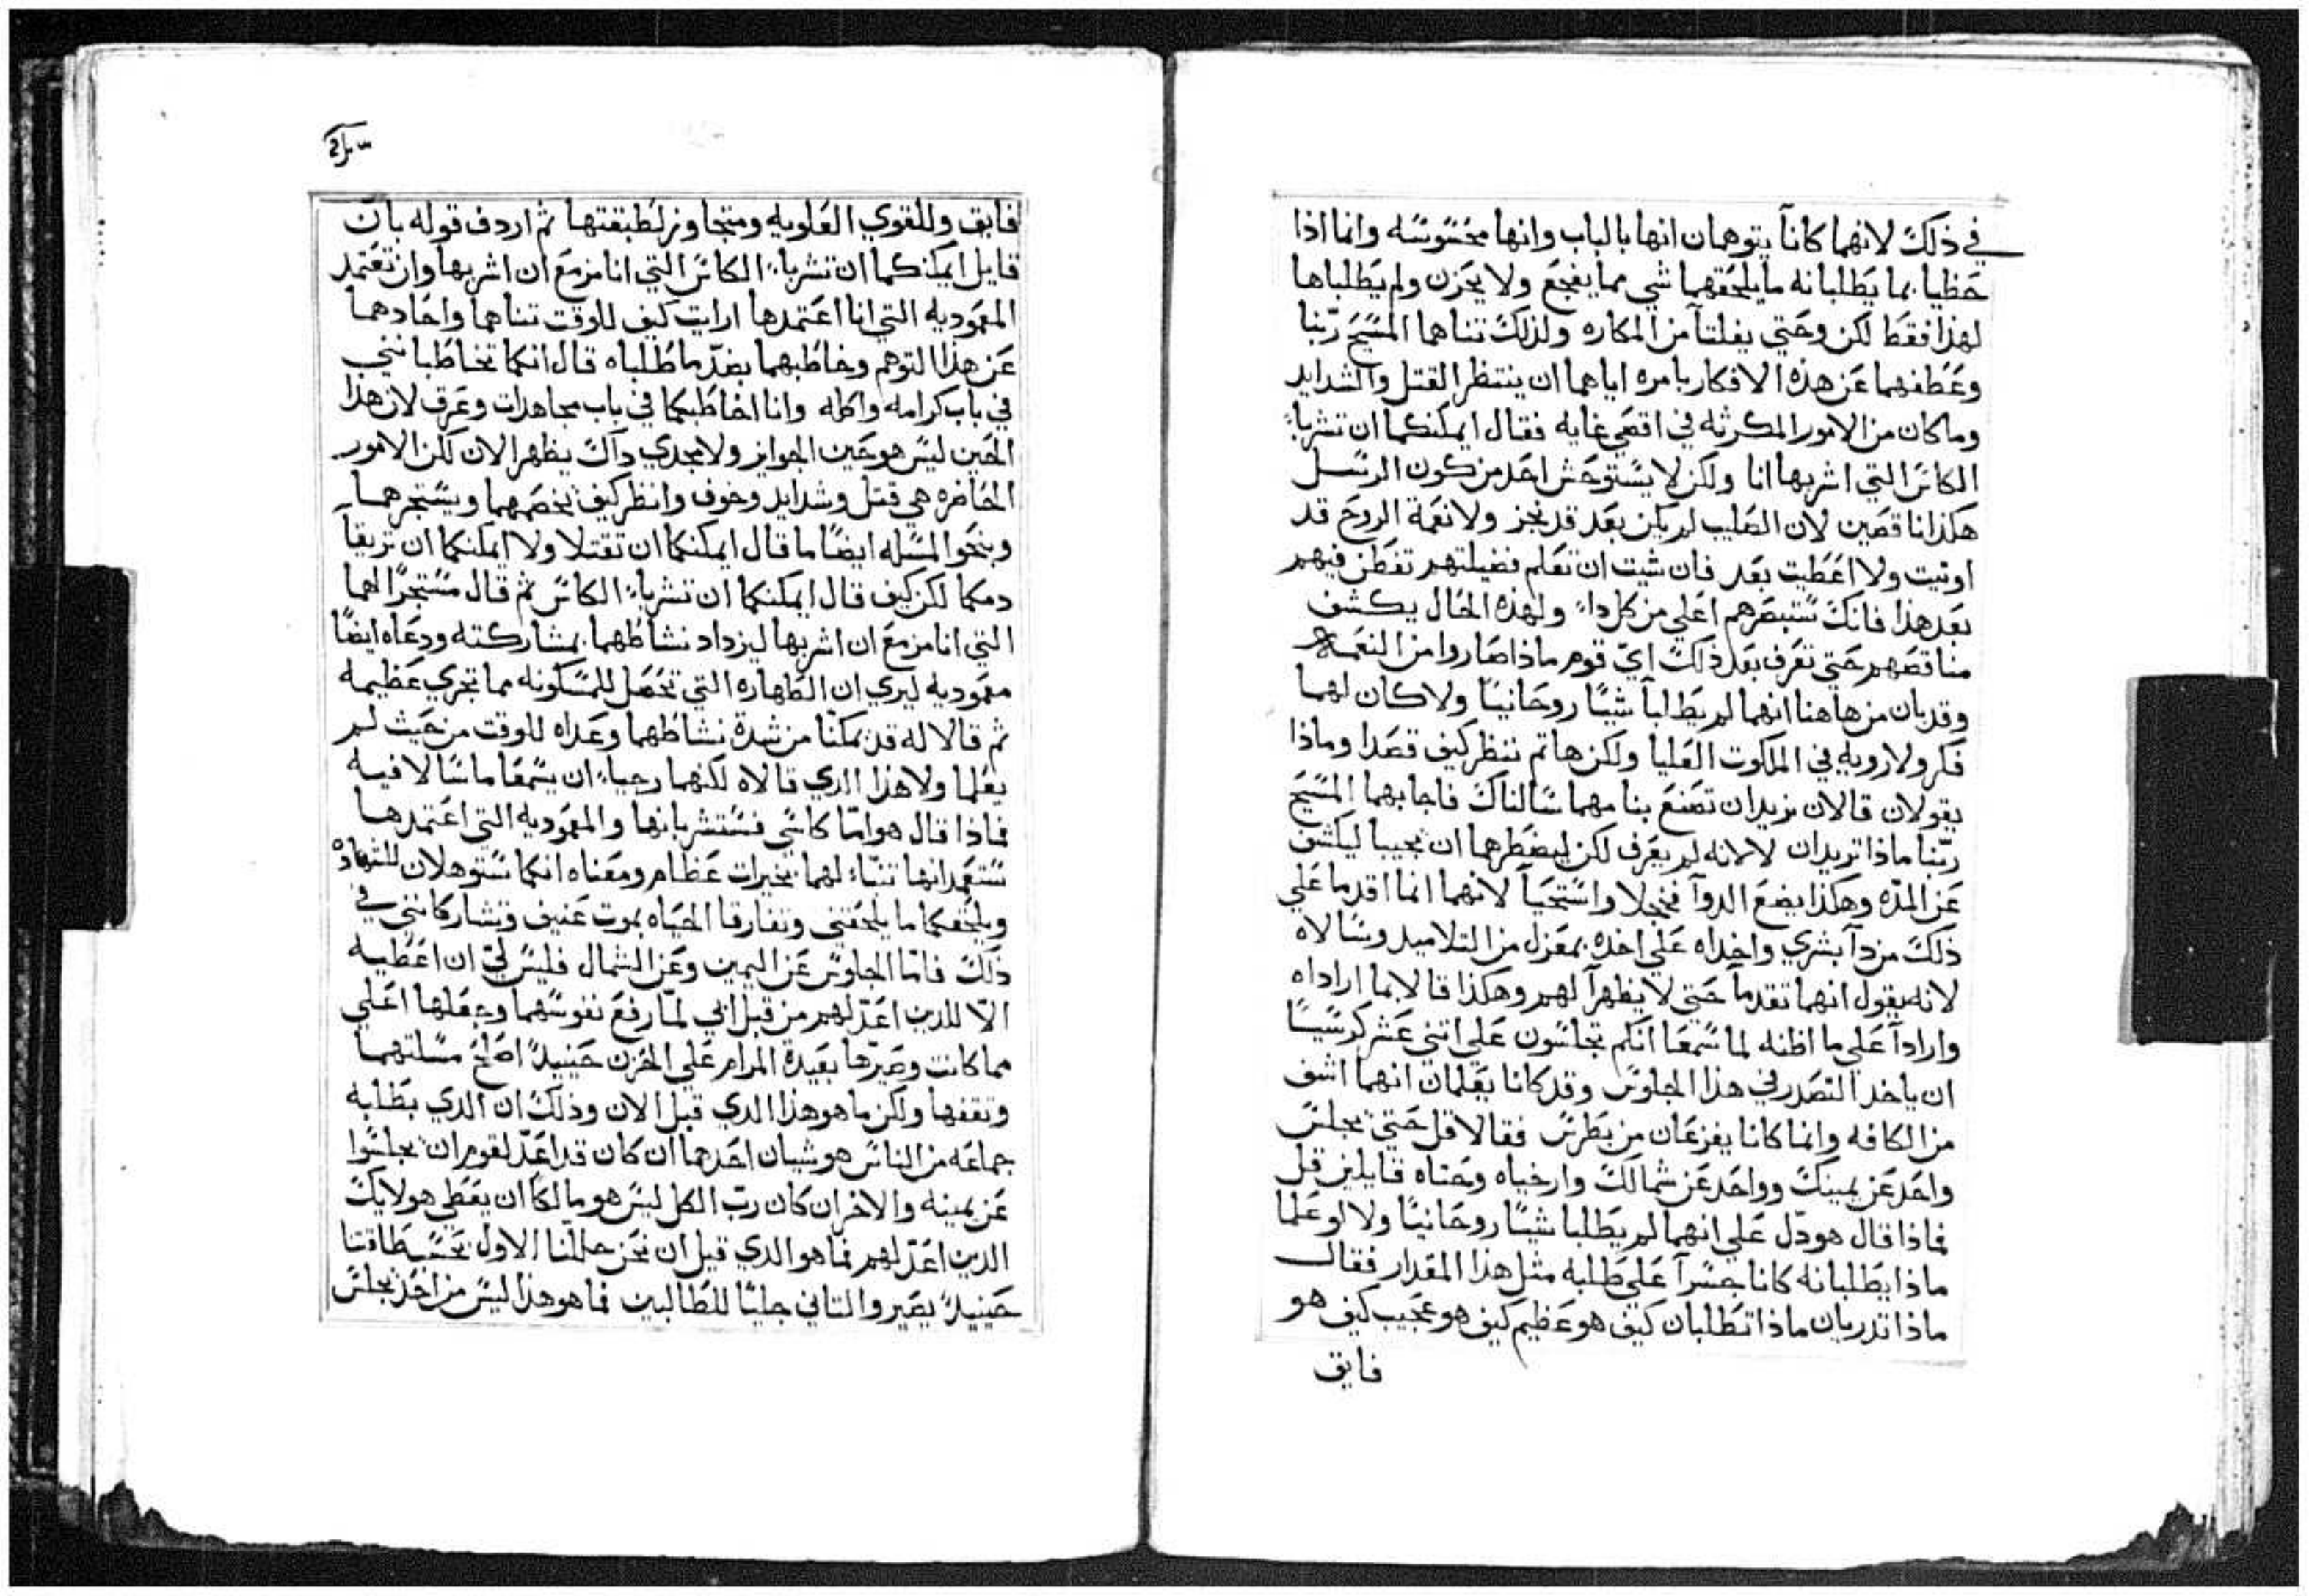 في ذلك لانهما كانا يتوهمان انها بالباب وانها محسوسه وانما اذا
حظيا بما يطلبانه ما يلحقهما شي مما يفجع ولا يحزن ولم يطلباها
لهذا فقط لكن وحتي يفلتا من المكاره ولذلك تناهما المسيح ربّنا
وعطفهما عن هذه الافكار بامره اياهما ان ينتظرا القتل والشدايد
وما كان من الامور المكرثه في اقصي غايه فقال ايمكنكما ان تشربا
الكاس التي اشربها انا ولكن لا يستوحش احد من كون الرسل
هكذا ناقصين لان الصليب لم يكن بعد قد نجز ولا نعمة الروح قد
اوتيت ولا اعطيت بعد فان شيت ان تعلم فضيلتهم تفطن فيهم
بعد هذا فانك ستبصرهم اعلي من كل داء ولهذه الحال يكشف
مناقصهم حتي تعرف بعد ذلك ايّ قوم ماذا صاروا من النعمه
وقد بان من هاهنا انهما لم يطلبا شيئا روحانيا ولا كان لهما
فكر ولا رويه في الملكوت العليا ولكن هاتم ننظر كيف قصدا وماذا
يقولان قالان نريد ان تصنع بنا مهما سالناك فاجابهما المسيح
ربّنا ماذا تريدان لا لانه لم يعرف لكن ليضطرهما ان يجيبا ليكشف
عن المدّه وهكذا يضع الدوآ فخجلا واستحيا لانهما انما اقدما علي
ذلك من دآ بشري واخداه علي اخده بمعزل من التلاميد وسالاه
لانه يقول انهما تقدما حتي لا يظهرا لهم وهكذا قالا بما اراداه
وارادآ علي ما اظنه لما سمعا انكم تجلسون علي اتني عشر كرسيسا
ان ياخدا التصدر في هذا الجلوس وقد كانا يعلمان انهما اشف
من الكافه وانما كانا يفزعان من بطرس فقالا قل حتي يجلس
واحد عن يمينك وواحد عن شمالك وارخياه وحتاه قايلين قل
فماذا قال هو دّل علي انهما لم يطلبا شيئا روحانيا ولا لو علما
ماذا يطلبانه كانا جسرآ علي طلبه مثل هذا المقدار فقال
ماذا تدريان ماذا تطلبان كيف هو عظيم كيف هو عجيب كيف هو
فايق
فايق وللقوي العلويه ومتجاوز لطبقتها ثم اردف قوله بان
قايل ايمكنكما ان تشربا الكاس التي انا مزمع ان اشربها وان تعتمد
المعموديه التي انا اعتمدها ارايت كيف للوقت تناهما واحادهما
عن هذا التوهم وخاطبهما بضدّ ما طلباه قال انكما تخاطبانني
في باب كرامه واكله وانا اخاطبكما في باب مجاهدات وعرق لان هذا
الحين ليس هو حين الجوايز ولا مجدي داك يظهر الان لكن الامور
الحاضره هي قتل وشدايد وخوف وانظر كيف يخصمهما ويستجرهما
وبنحو المسله ايضا ما قال ايمكنكما ان تقتلا ولا ايمكنكما ان تريقا
دمكما لكن كيف قال ايمكنكما ان تشربا الكاس ثم قال مستجرّا لهما
التي انا مزمع ان اشربها ليزداد نشاطهما بمشاركته ودعاه ايضا
معموديه ليري ان الطهاره التي تحصل للمسكونه مما تجري عظيمه
ثم قالا له قد يمكنّا من شدة نشاطهما وعداه للوقت من حيث لم
يعلما ولا هذا الدي قالاه لكنهما رجياء ان يسمعا ما سالا فيه
فاذا قال هو امّا كاسي فستشربانها والمعموديه التي اعتمدها
ستعمدانها تنبّاء لهما بخيرات عظام ومعناه انكما ستوهلان للشهاده
ويلحقكما ما يلحقني وتفارقا الحياه بموت عنيف وتشاركانني في
ذلك فامّا الجلوس عن اليمين وعن الشمال فليس لي ان اعطيه
الاّ للدين اعدّ لهم من قبل ابي لمّا رفع نفوسهما وجعلها اعلي
مما كانت وصيرّها بعيدة المرام علي الحزن حينيد اصلح مسلتهما
وتقفها ولكن ما هو هذا الدي قبل الان وذلك ان الدي يطلبه
جماعه من الناس هو شيان احدهما ان كان قد اعدّ لقوم ان يجلسوا
عن يمينه والاخر ان كان ربّ الكل ليس هو مالكا ان يعطي هولايك
الدين اعدّ لهم فما هو الدي قيل ان نحن حللّنا الاول بحسب طاقتنا
حينيد يصير والتاني جليّا للطالبين فما هو هذا ليس من احد يجلس